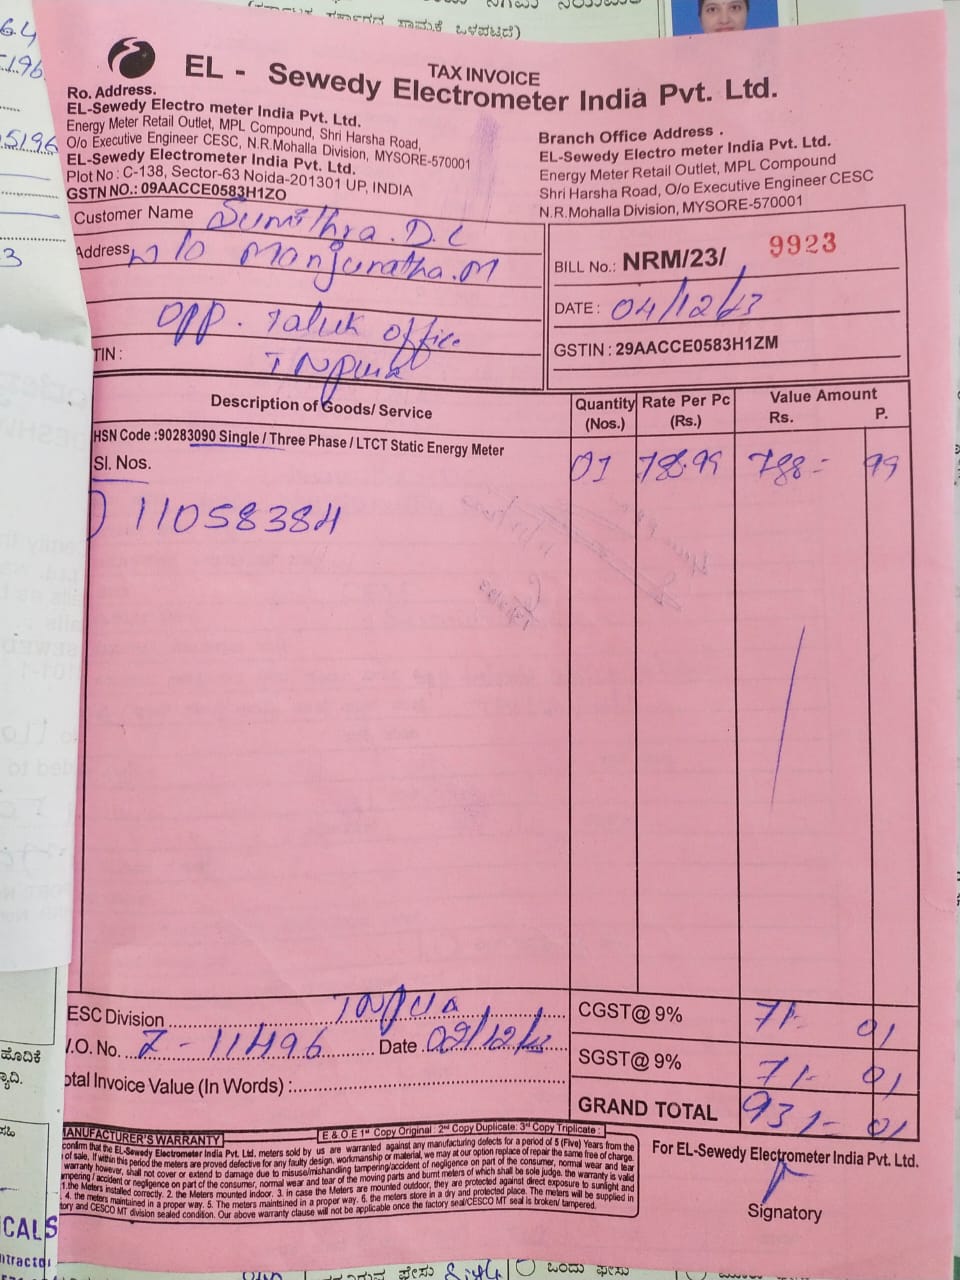 TAX INVOICE
EL - Sewedy Electrometer India Pvt. Ltd.
Ro. Address.
EL-Sewedy Electro meter India Pvt. Ltd.
Energy Meter Retail Outlet, MPL Compound, Shri Harsha Road,
O/o Executive Engineer CESC, N.R.Mohalla Division, MYSORE-570001
EL-Sewedy Electrometer India Pvt. Ltd.
Plot No : C-138, Sector-63 Noida-201301 UP, INDIA
GSTN NO.: 09AACCE0583H1ZO
Branch Office Address .
EL-Sewedy Electro meter India Pvt. Ltd.
Energy Meter Retail Outlet, MPL Compound
Shri Harsha Road, O/o Executive Engineer CESC
N.R.Mohalla Division, MYSORE-570001
Customer Name Sumithra.D.C
Address w/o Manjunatha.M
Opp. Taluk office
TIN : TNpura
BILL No.: NRM/23/ 9923
DATE : 04/12/23
GSTIN : 29AACCE0583H1ZM
Description of Goods/ Service
Quantity (Nos.)
Rate Per Pc (Rs.)
Value Amount
Rs. P.
HSN Code :90283090 Single / Three Phase / LTCT Static Energy Meter
Sl. Nos.
) 11058384
01 788.99 788- 99
ESC Division TNpura
.O. No. Z-11496 Date 02/12/23
otal Invoice Value (In Words) :
CGST@ 9% 71- 01
SGST@ 9% 71- 01
GRAND TOTAL 931- 01
E & O.E 1st Copy Original : 2nd Copy Duplicate: 3rd Copy Triplicate :
MANUFACTURER'S WARRANTY
confirm that the EL-Sewedy Electrometer India Pvt. Ltd. meters sold by us are warranted against any manufacturing defects for a period of 5 (Five) Years from the
of sale. If within this period the meters are proved defective for any faulty design, workmanship or material, we may at our option replace of repair the same free of charge.
warranty however, shall not cover or extend to damage due to misuse/mishandling tampering/accident of negligence on part of the consumer, normal wear and tear
mpering / accident or negligence on part of the consumer, normal wear and tear of the moving parts and burnt meters of which shall be sole judge. the warranty is valid
1.the Meters installed correctly. 2. the Meters mounted indoor. 3. in case the Meters are mounted outdoor, they are protected against direct exposure to sunlight and
4. the meters maintained in a proper way. 5. The meters maintsined in a proper way. 6. the meters store in a dry and protected place. The meters will be supplied in
tory and CESCO MT division sealed condition. Our above warranty clause will not be applicable once the factory seal/CESCO MT seal is broken/ tampered.
For EL-Sewedy Electrometer India Pvt. Ltd.
Signatory